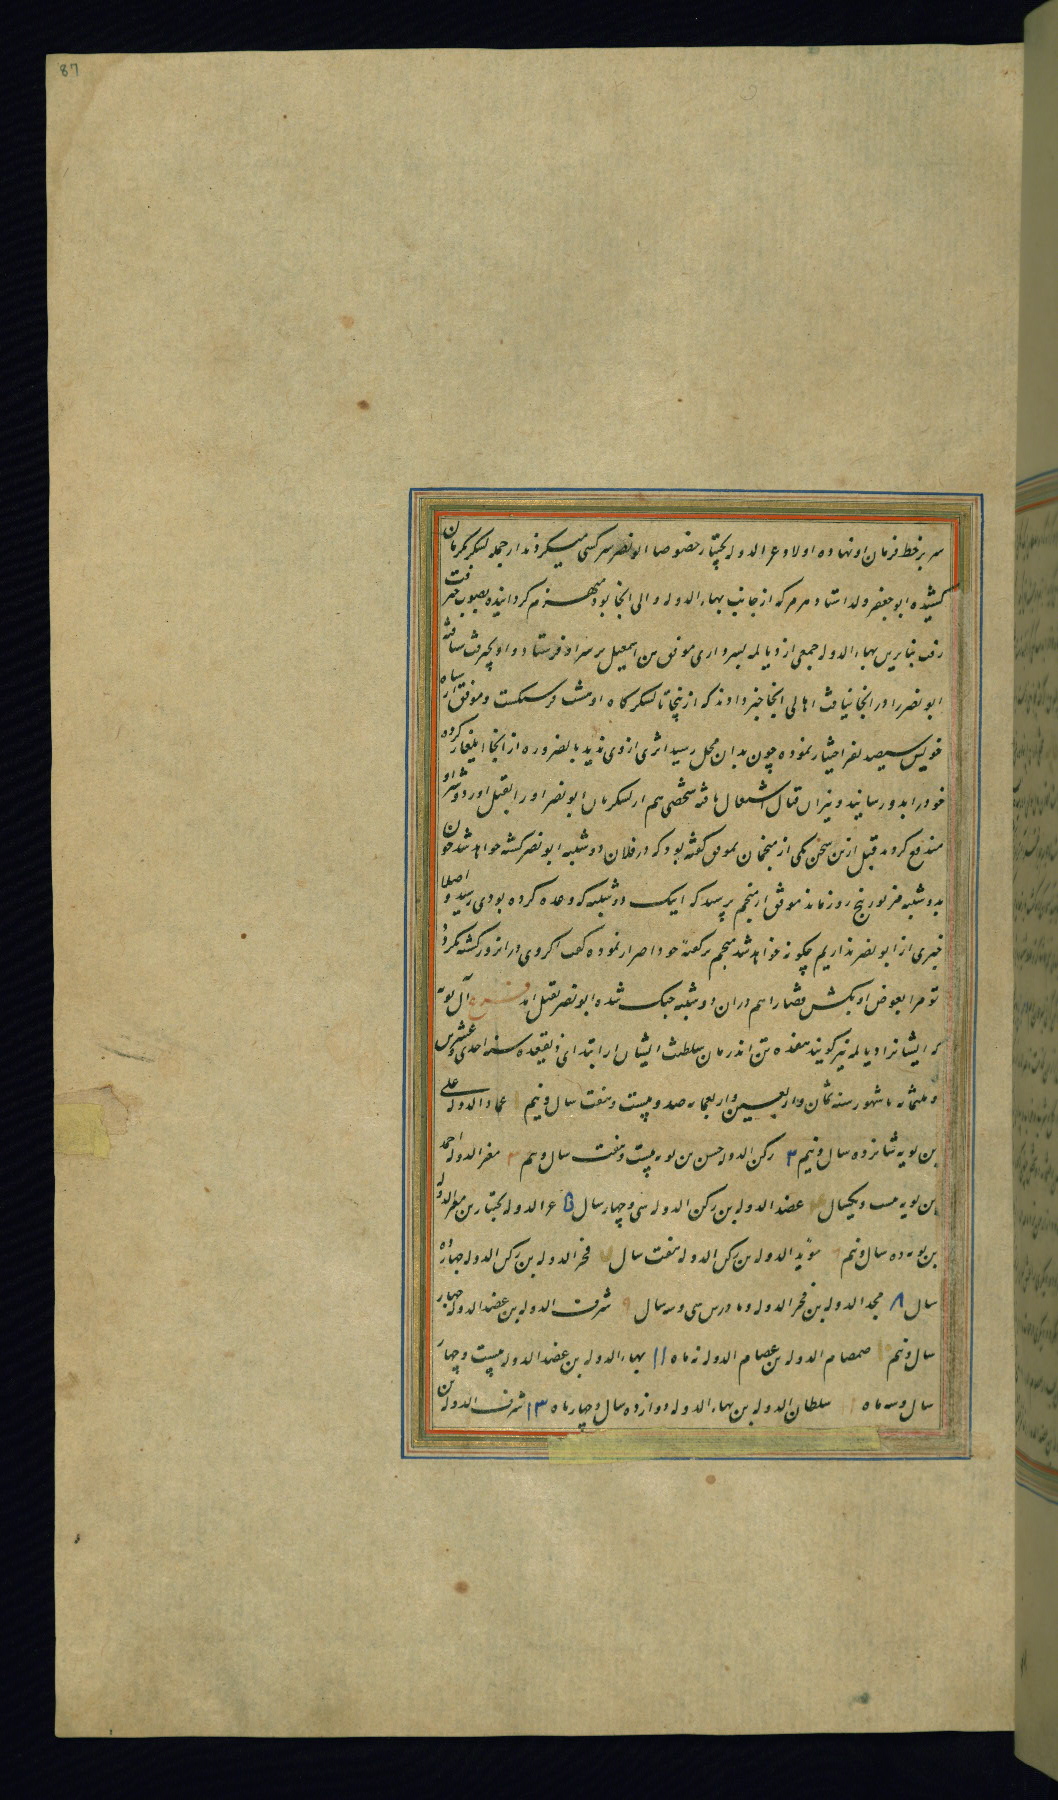 87
سر بر خط فرمان او نهاده اولاد عز الدوله بختیار خصوصا ابو نصر سر کشی میکردند از جمله لشکر بکرمان
کشیده ابو جعفر ولد استاد هرمز که از جانب بهاء الدوله والی انجا بود منهزم کردانیده بصوب جیرفت
رفت بنابرین بهاء الدوله جمعی از دیالمه بسرداری موفق بن اسمعیل بر سر او فرستاد و او بجیرفت شتافته
ابو نصر را در انجا نیافت اهالی انجا خبر دادند که ازینجا تا لشکر کاه او هشت فرسنکست و موفق از سپاه
خویش سیصد نفر اختیار نموده چون بدان محل رسید اثری از وی ندید بالضروره از انجا ایلغار کرده
خود را بدو رسانید و نیران قتال اشتعال یافته شخصی هم از لشکریان ابو نصر او را بقتل اورد و شر او
مندفع کردید قبل ازین سخن یکی از منجمان بموفق کفته بود که در فلان دوشنبه ابو نصر کشته خواهد شد چون
بدوشنبه مزبور پنج روز ماند موفق از منجم پرسید که اینک دوشنبه که وعده کرده بودی رسید و اصلا
خبری از ابو نصر نداریم چکونه خواهد شد منجم بر کفته خود اصرار نموده کفت اکر وی در انروز کشته نکردد
تو مرا بعوض او بکش قضا را هم دران دوشنبه جنک شده ابو نصر بقتل امد آل بویه
که ایشانرا دیالمه نیز کویند هفده تن اند زمان سلطنت ایشان از ابتدای ذیقعده سنه احدی و عشرین
و ثلثمائه تا شهور سنه ثمان و اربعین و اربعمائه صد و بیست و هفت سال و نیم عماد الدوله علی
بن بویه شانزده سال و نیم ۲ رکن الدوله حسن بن بویه بیست و هفت سال و نیم ۳ معز الدوله احمد
بن بویه بیست و یکسال ۴ عضد الدوله بن رکن الدوله سی و چهار سال ۵ عز الدوله بختیار بن معز الدوله
بن بویه ده سال و نیم ۶ موید الدوله بن رکن الدوله هفت سال ۷ فخر الدوله بن رکن الدوله چهارده
سال ۸ مجد الدوله بن فخر الدوله و مادرش سی و سه سال ۹ شرف الدوله بن عضد الدوله چهار
سال و نیم ۱۰ صمصام الدوله بن عصام الدوله نه ماه ۱۱ بهاء الدوله بن عضد الدوله بیست و چهار
سال و سه ماه سلطان الدوله بن بهاء الدوله دوازده سال و چهار ماه ۱۳ شرف الدوله بن